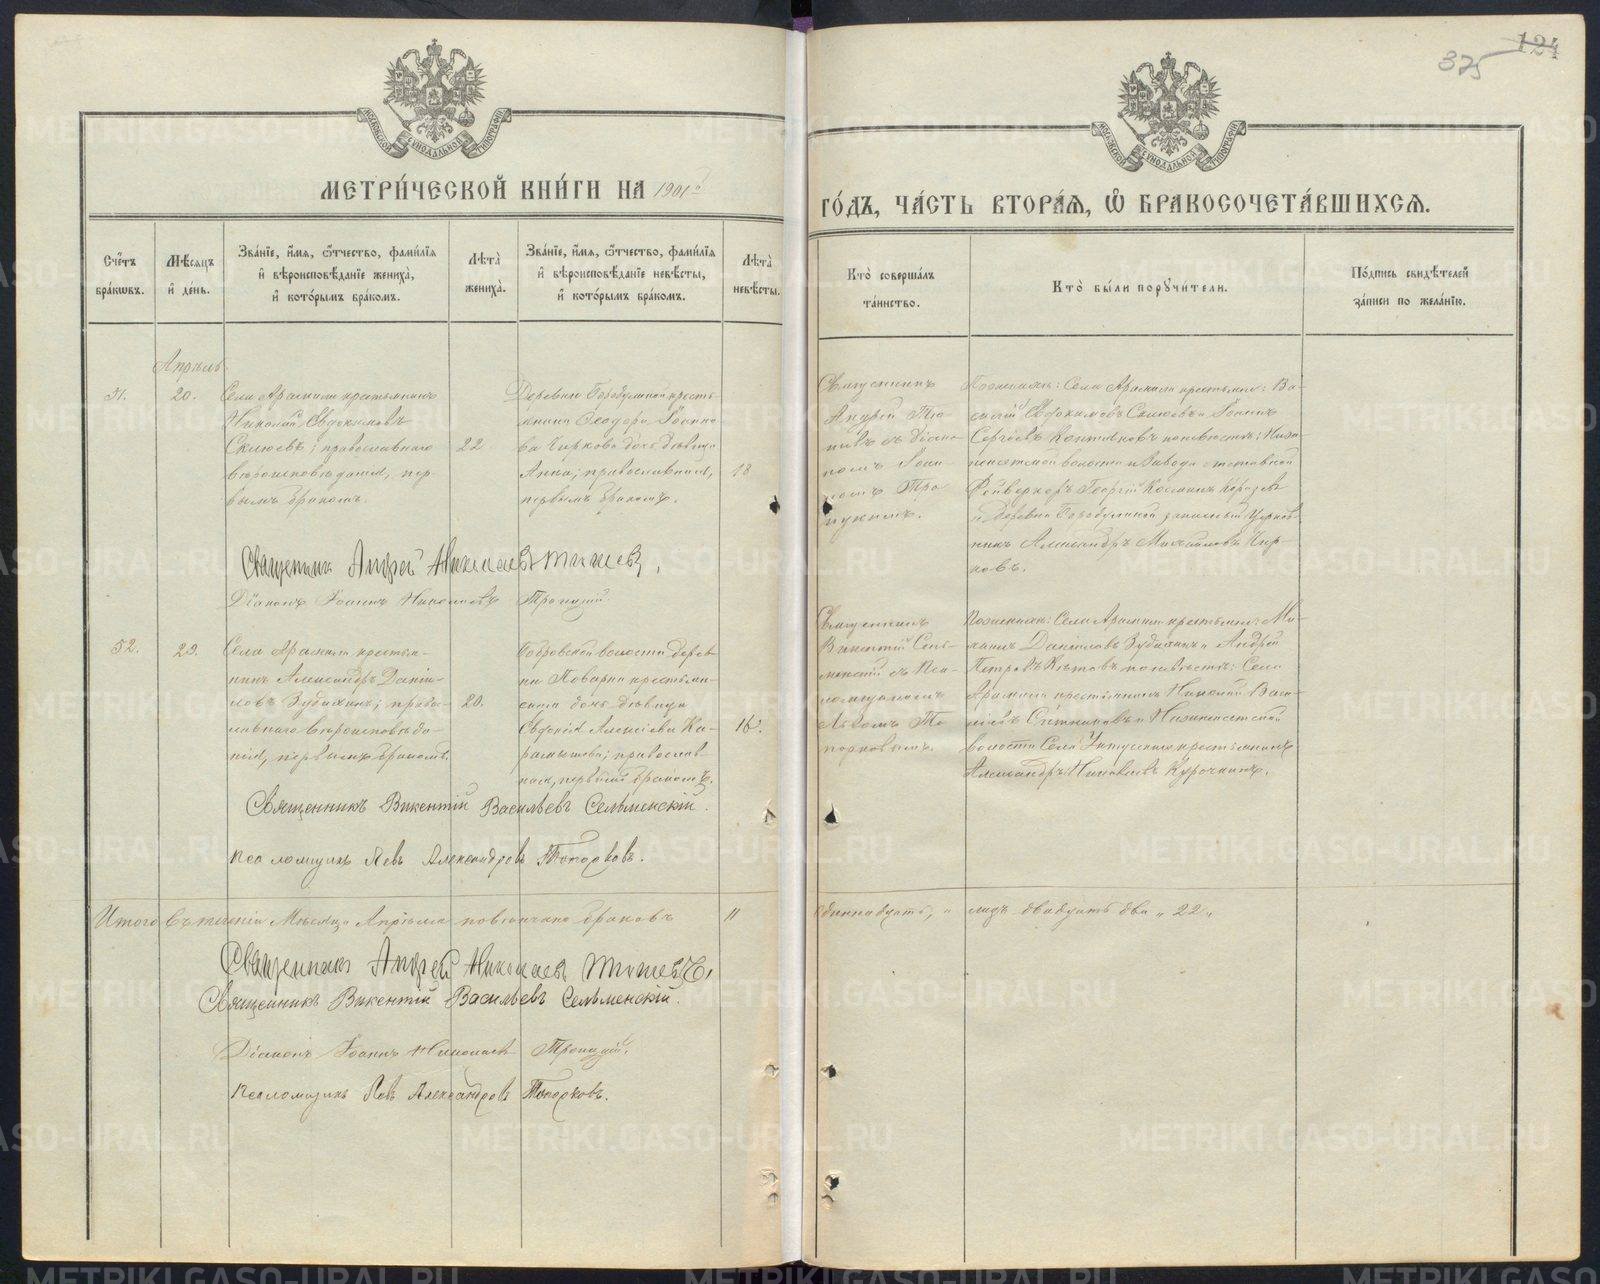 375 124
МОСКОВСКОЙ СѴНОДАЛЬНОЙ ТИПОГРАФІИ
МОСКОВСКОЙ СѴНОДАЛЬНОЙ ТИПОГРАФІИ
МЕТРИ́ЧЕСКОЙ КНИ́ГИ НА 1901й
ГО́ДЪ, ЧА́СТЬ ВТОРА́Я, Ѡ҆ БРАКОСОЧЕТА́ВШИХСЯ.
Сче́тъ бра́кωвъ.
Мѣ́сяцъ и҆ де́нь.
Зва́нїе, и҆́мя, ѻ҆́тчество, фами́лїя
и҆ вѣроисповѣ́данїе жениха̀,
и҆ кото́рымъ бра́комъ.
Лѣта̀ жениха̀.
Зва́нїе, и҆́мя, ѻ҆́тчество, фами́лїя
и҆ вѣроисповѣ́данїе невѣ́сты,
и҆ кото́рымъ бра́комъ.
Лѣта̀ невѣ́сты.
Кто̀ соверша́лъ та́инство.
Кто̀ бы́ли порꙋчи́тели.
По́дпись свидѣ́телей
за́писи по жела́нїю.
Апрѣль
51.
20.
Села Арамили крестьянинъ
Николай Евдокимовъ
Склюевъ; православнаго
вѣроисповѣданія, пер-
вымъ бракомъ.
22
Деревни Бородулиной кресть-
янина Ѳеодора Іоанно-
ва Чиркова дочь дѣвица
Анна; православная,
первымъ бракомъ.
18
Священникъ
Андрей Тю-
шевъ съ діако-
номъ Іоан-
номъ Тро-
ицкимъ.
По женихѣ: Села Арамили крестьяне: Ва-
силій Евдокимовъ Склюевъ и Іоаннъ
Сергѣевъ по невѣстѣ: Ниже-
исетской волости и завода отставной
Фейверкеръ Георгій Козминъ
и деревни Бородулиной запасный
Александръ Михайловъ Чир-
ковъ.
Священникъ Андрей Николаевъ Тюшевъ,
Діаконъ Іоаннъ Николаевъ Троицкій.
52.
29.
Села Арамили крестья-
нинъ Александръ Даніи-
ловъ Зудихинъ; право-
славнаго вѣроисповѣда-
нія, первымъ бракомъ.
20.
Бобровской волости дерев-
ни Поварни крестьян-
ская дочь дѣвица
Евдокія Алексіева Ка-
рамышева; православ-
ная, первымъ бракомъ.
16½
Священникъ
Викентій Сель-
менскій съ Пса-
ломщикомъ
Львомъ То-
порковымъ.
По женихѣ: Села Арамили крестьяне: Ми-
хаилъ Даніиловъ Зудихинъ и Андрей
Петровъ Кѣтовъ по невѣстѣ: Села
Арамили крестьянинъ Николай Васи-
льевъ Ситниковъ и Нижеисетской
волости Села Уктусскаго крестьянинъ
Александръ Николаевъ Курочкинъ.
Священникъ Викентій Васильевъ Сельменскій.
Псаломщикъ Левъ Александровъ Топорковъ.
Итого въ теченіи Мѣсяца Апрѣля повѣнчано браковъ 11 одиннадцать, лицъ двадцать два „22„
Священникъ Андрей Николаевъ Тюшевъ,
Священникъ Викентій Васильевъ Сельменскій.
Діаконъ Іоаннъ Николаевъ Троицкій.
Псаломщикъ Левъ Александровъ Топорковъ.
METRIKI.GASO-URAL.RU